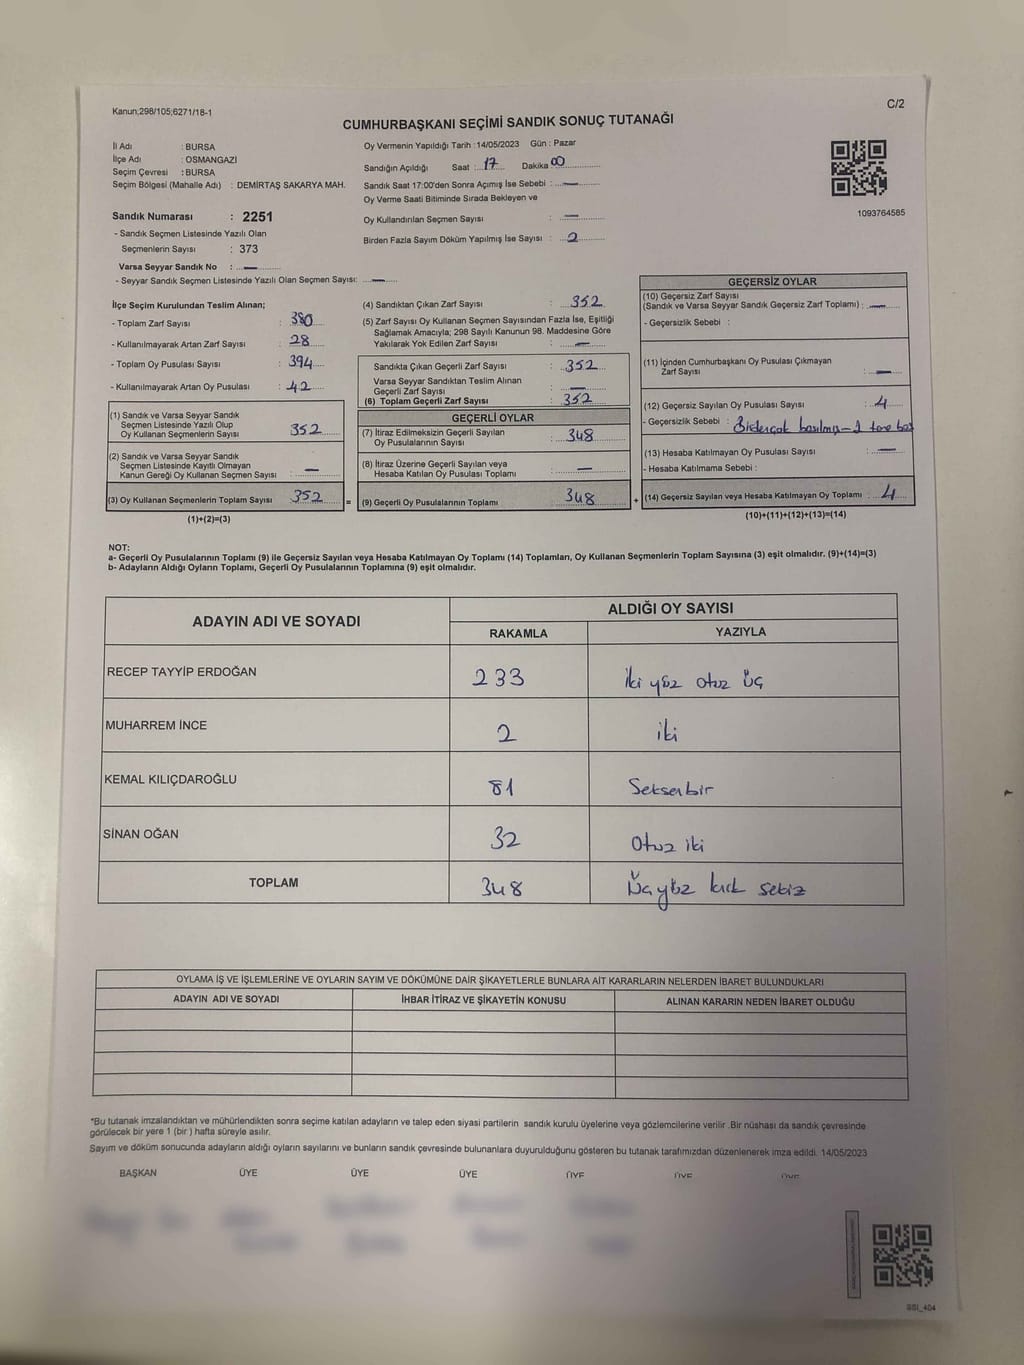 Kanun;298/105;6271/18-1
C/2
CUMHURBAŞKANI SEÇİMİ SANDIK SONUÇ TUTANAĞI
İl Adı : BURSA
İlçe Adı : OSMANGAZİ
Seçim Çevresi : BURSA
Seçim Bölgesi (Mahalle Adı) : DEMİRTAŞ SAKARYA MAH.
Sandık Numarası : 2251
- Sandık Seçmen Listesinde Yazılı Olan
Seçmenlerin Sayısı : 373
Varsa Seyyar Sandık No : —
- Seyyar Sandık Seçmen Listesinde Yazılı Olan Seçmen Sayısı: —
Oy Vermenin Yapıldığı Tarih : 14/05/2023 Gün : Pazar
Sandığın Açıldığı Saat : 17 Dakika 00
Sandık Saat 17:00'den Sonra Açımış İse Sebebi : —
Oy Verme Saati Bitiminde Sırada Bekleyen ve
Oy Kullandırılan Seçmen Sayısı : —
Birden Fazla Sayım Döküm Yapılmış İse Sayısı : 2
1093764585
İlçe Seçim Kurulundan Teslim Alınan;
- Toplam Zarf Sayısı : 380
- Kullanılmayarak Artan Zarf Sayısı : 28
- Toplam Oy Pusulası Sayısı : 394
- Kullanılmayarak Artan Oy Pusulası : 42
(1) Sandık ve Varsa Seyyar Sandık
Seçmen Listesinde Yazılı Olup
Oy Kullanan Seçmenlerin Sayısı 352
(2) Sandık ve Varsa Seyyar Sandık
Seçmen Listesinde Kayıtlı Olmayan
Kanun Gereği Oy Kullanan Seçmen Sayısı : —
(3) Oy Kullanan Seçmenlerin Toplam Sayısı 352
(1)+(2)=(3)
=
(4) Sandıktan Çıkan Zarf Sayısı : 352
(5) Zarf Sayısı Oy Kullanan Seçmen Sayısından Fazla İse, Eşitliği
Sağlamak Amacıyla; 298 Sayılı Kanunun 98. Maddesine Göre
Yakılarak Yok Edilen Zarf Sayısı : —
Sandıkta Çıkan Geçerli Zarf Sayısı : 352
Varsa Seyyar Sandıktan Teslim Alınan
Geçerli Zarf Sayısı : —
(6) Toplam Geçerli Zarf Sayısı : 352
GEÇERLİ OYLAR
(7) İtiraz Edilmeksizin Geçerli Sayılan
Oy Pusulalarının Sayısı : 348
(8) İtiraz Üzerine Geçerli Sayılan veya
Hesaba Katılan Oy Pusulası Toplamı : —
(9) Geçerli Oy Pusulalarının Toplamı 348
+
GEÇERSİZ OYLAR
(10) Geçersiz Zarf Sayısı
(Sandık ve Varsa Seyyar Sandık Geçersiz Zarf Toplamı) : —
- Geçersizlik Sebebi :
(11) İçinden Cumhurbaşkanı Oy Pusulası Çıkmayan
Zarf Sayısı : —
(12) Geçersiz Sayılan Oy Pusulası Sayısı : 4
- Geçersizlik Sebebi :
(13) Hesaba Katılmayan Oy Pusulası Sayısı : —
- Hesaba Katılmama Sebebi :
(14) Geçersiz Sayılan veya Hesaba Katılmayan Oy Toplamı : 4
(10)+(11)+(12)+(13)=(14)
NOT:
a- Geçerli Oy Pusulalarının Toplamı (9) ile Geçersiz Sayılan veya Hesaba Katılmayan Oy Toplamı (14) Toplamları, Oy Kullanan Seçmenlerin Toplam Sayısına (3) eşit olmalıdır. (9)+(14)=(3)
b- Adayların Aldığı Oyların Toplamı, Geçerli Oy Pusulalarının Toplamına (9) eşit olmalıdır.
ADAYIN ADI VE SOYADI
ALDIĞI OY SAYISI
RAKAMLA YAZIYLA
RECEP TAYYİP ERDOĞAN 233 İki yüz otuz üç
MUHARREM İNCE 2 iki
KEMAL KILIÇDAROĞLU 81 Seksenbir
SİNAN OĞAN 32 Otuz iki
TOPLAM 348 Üçyüz kırk sekiz
OYLAMA İŞ VE İŞLEMLERİNE VE OYLARIN SAYIM VE DÖKÜMÜNE DAİR ŞİKAYETLERLE BUNLARA AİT KARARLARIN NELERDEN İBARET BULUNDUKLARI
ADAYIN ADI VE SOYADI İHBAR İTİRAZ VE ŞİKAYETİN KONUSU ALINAN KARARIN NEDEN İBARET OLDUĞU
*Bu tutanak imzalandıktan ve mühürlendikten sonra seçime katılan adayların ve talep eden siyasi partilerin sandık kurulu üyelerine veya gözlemcilerine verilir .Bir nüshası da sandık çevresinde
görülecek bir yere 1 (bir ) hafta süreyle asılır.
Sayım ve döküm sonucunda adayların aldığı oyların sayılarını ve bunların sandık çevresinde bulunanlara duyurulduğunu gösteren bu tutanak tarafımızdan düzenlenerek imza edildi. 14/05/2023
BAŞKAN ÜYE ÜYE ÜYE ÜYE ÜYE ÜYE
SSI_404